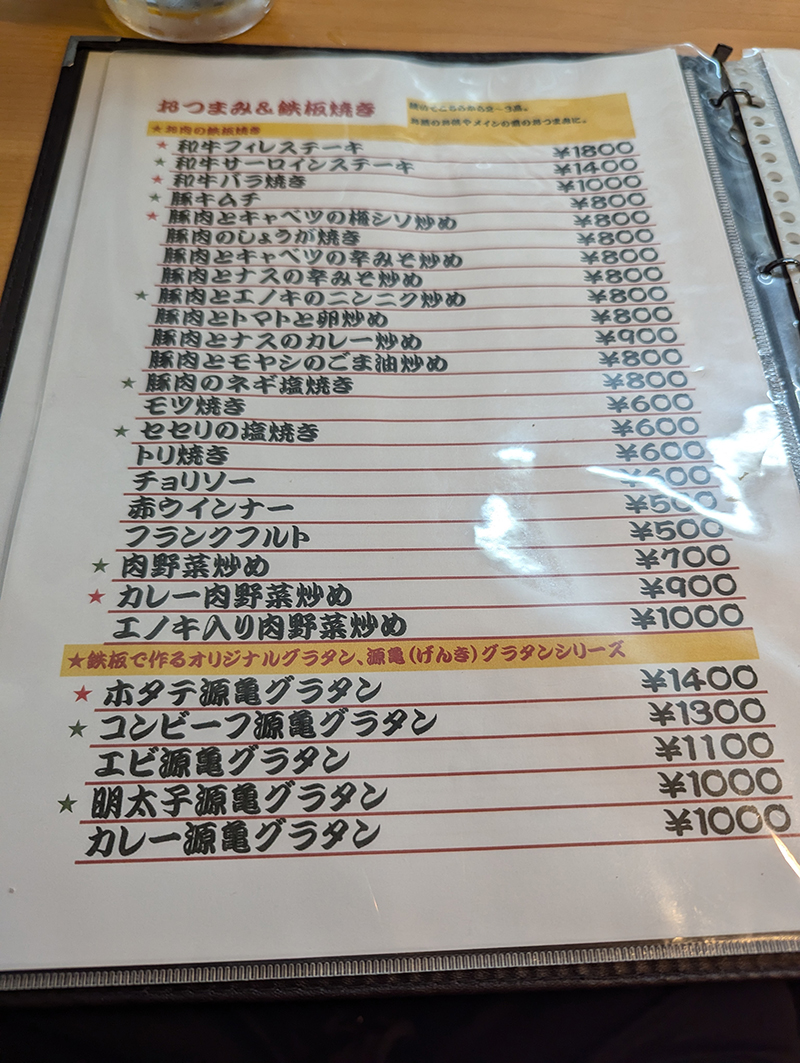 おつまみ＆鉄板焼き
鉄板でこちらから2～3品。
お酒のお供やメインの前のおつまみに。
★お肉の鉄板焼き
★和牛フィレステーキ ¥1800
★和牛サーロインステーキ ¥1400
★和牛バラ焼き ¥1000
★豚キムチ ¥800
★豚肉とキャベツの梅シソ炒め ¥800
豚肉のしょうが焼き ¥800
豚肉とキャベツの辛みそ炒め ¥800
豚肉とナスの辛みそ炒め ¥800
★豚肉とエノキのニンニク炒め ¥800
豚肉とトマトと卵炒め ¥800
豚肉とナスのカレー炒め ¥900
豚肉とモヤシのごま油炒め ¥800
★豚肉のネギ塩焼き ¥800
モツ焼き ¥600
★セセリの塩焼き ¥600
トリ焼き ¥600
チョリソー ¥600
赤ウインナー ¥500
フランクフルト ¥500
★肉野菜炒め ¥700
★カレー肉野菜炒め ¥900
エノキ入り肉野菜炒め ¥1000
★鉄板で作るオリジナルグラタン、源亀（げんき）グラタンシリーズ
★ホタテ源亀グラタン ¥1400
★コンビーフ源亀グラタン ¥1300
エビ源亀グラタン ¥1100
★明太子源亀グラタン ¥1000
カレー源亀グラタン ¥1000